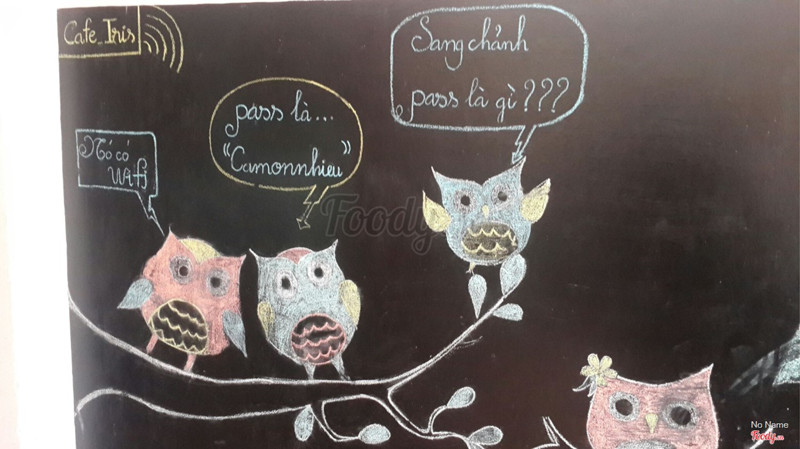 Cafe_Iris
Nó có
Wifi
pass là...
"Camonnhieu"
Sang chảnh
pass là gì???
Foody
No Name
Foody.vn